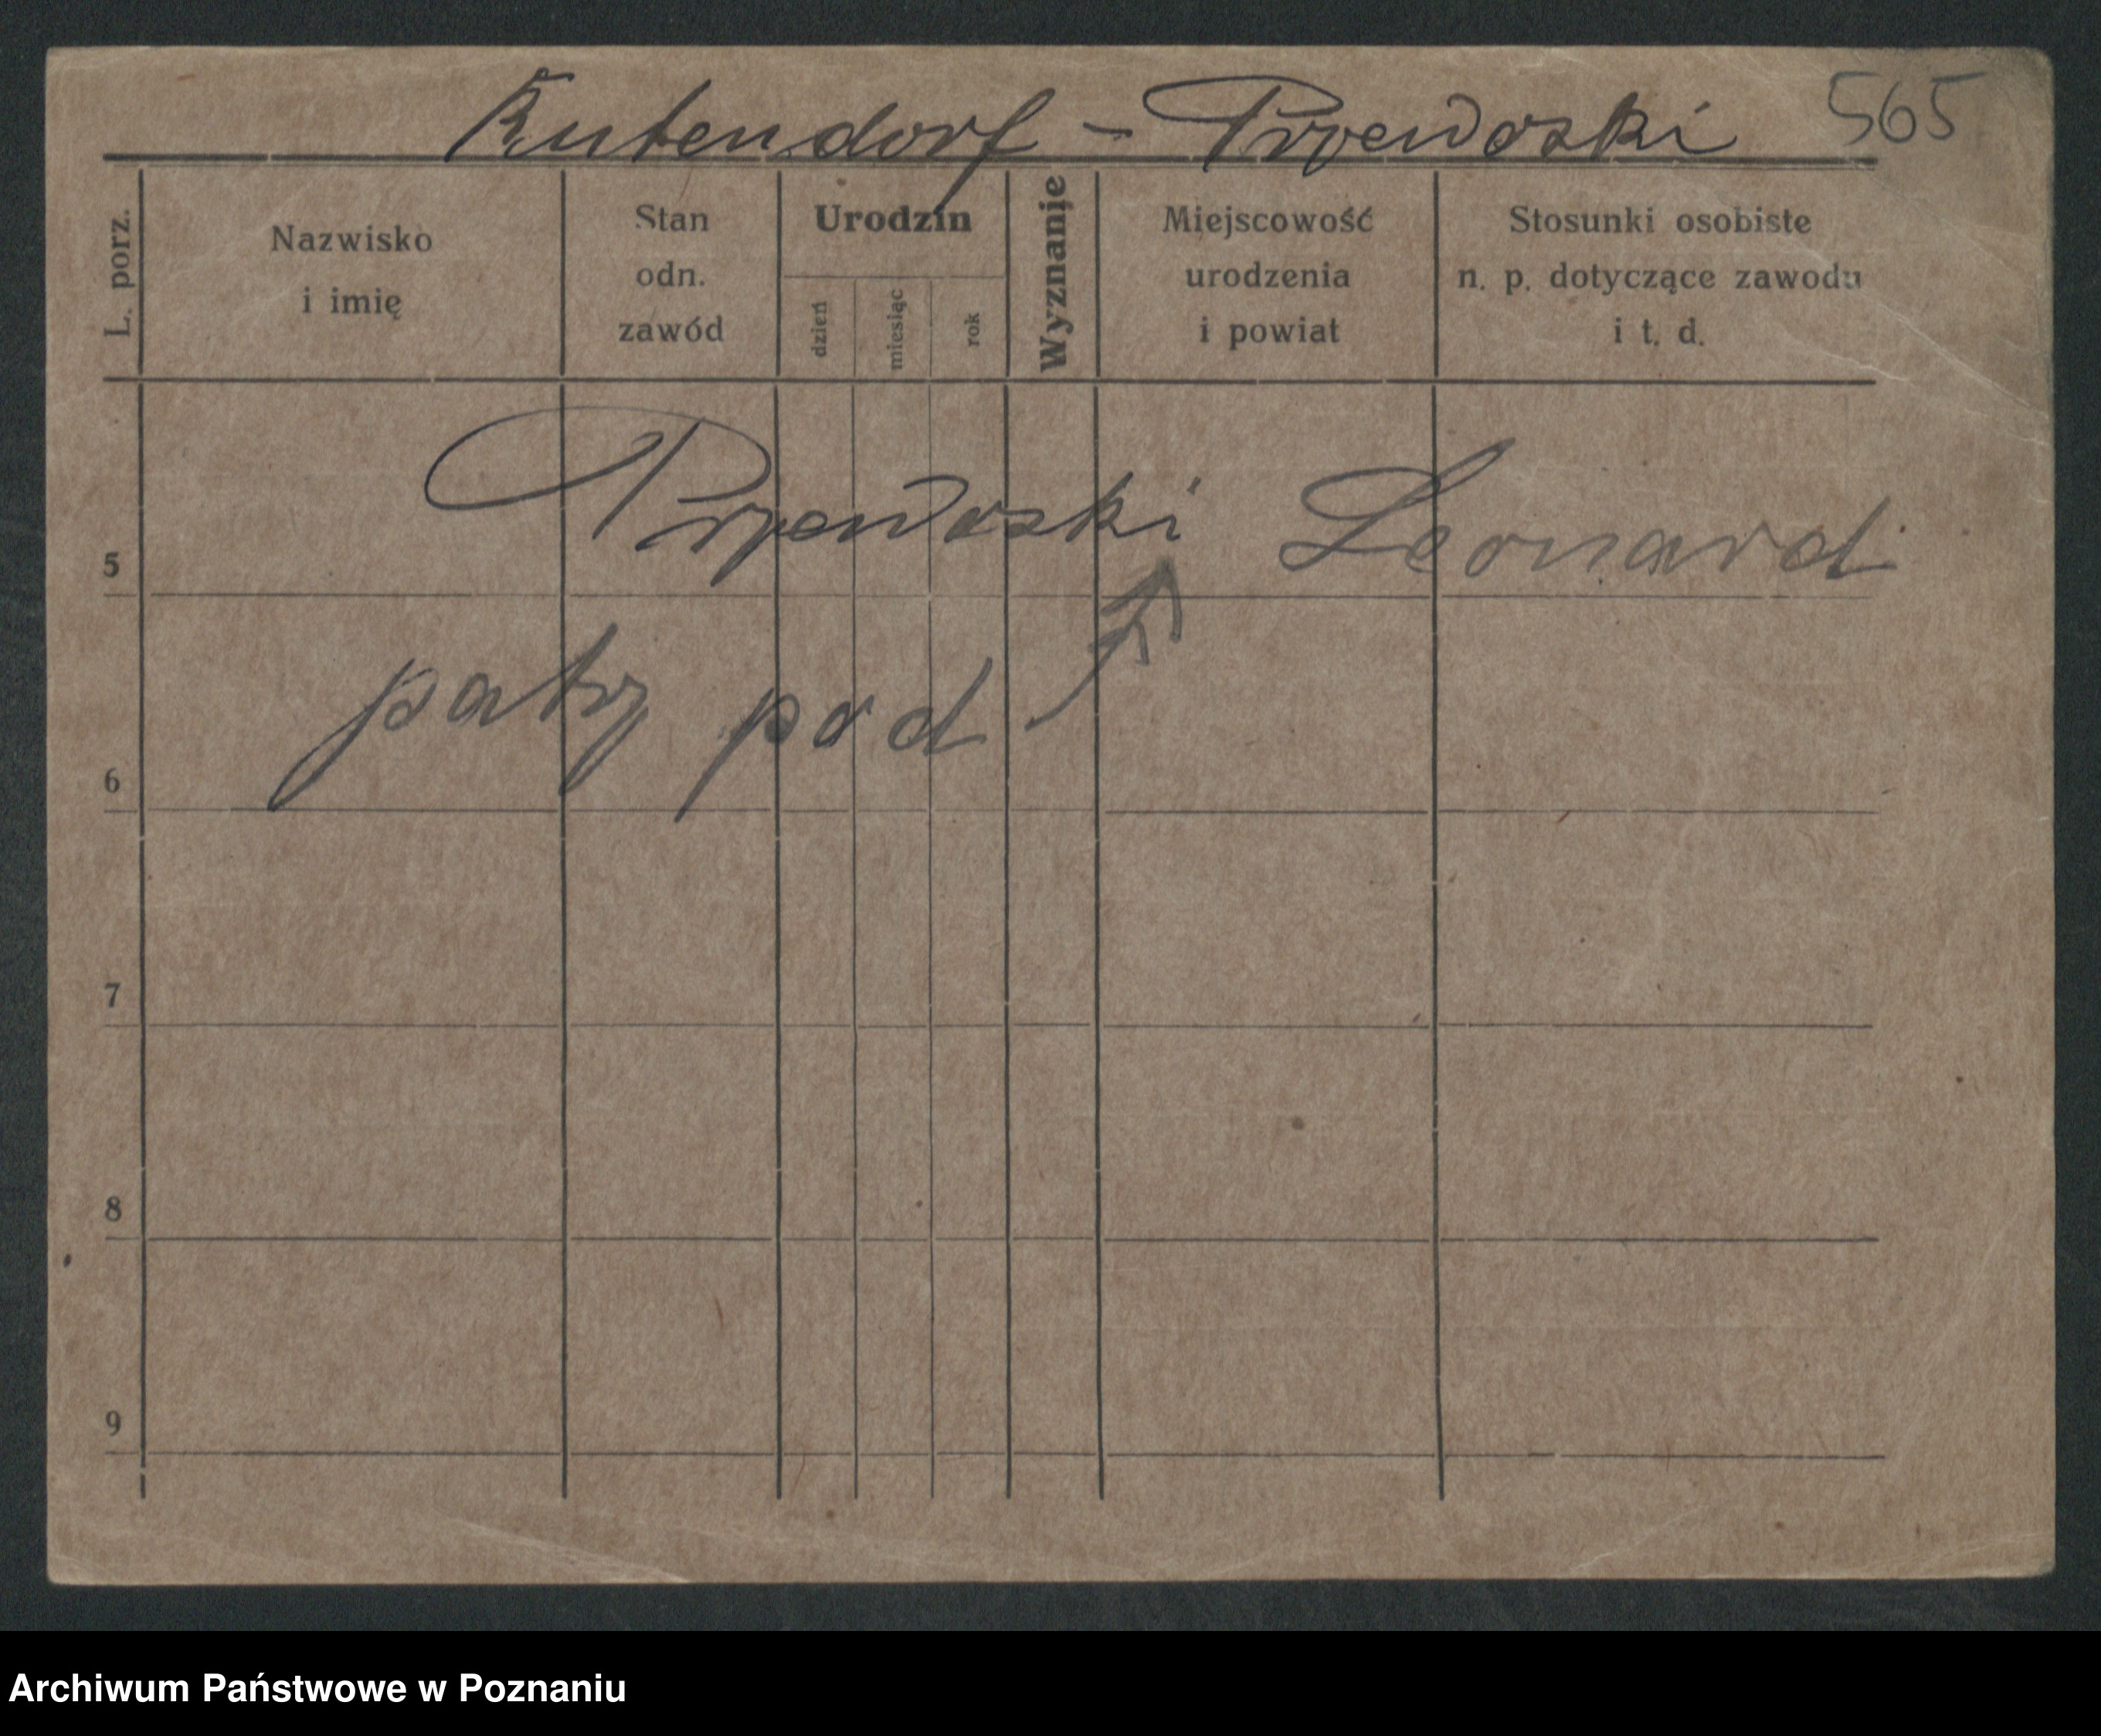 Rutendorf - Przewoski 565
L. porz.
Nazwisko
i imię
Stan
odn.
zawód
Urodzin
dzień
miesiąc
rok
Wyznanie
Miejscowość
urodzenia
i powiat
Stosunki osobiste
n. p. dotyczące zawodu
i t. d.
5 Przewoski Leonard
6 patrz pod
7
8
9
Archiwum Państwowe w Poznaniu